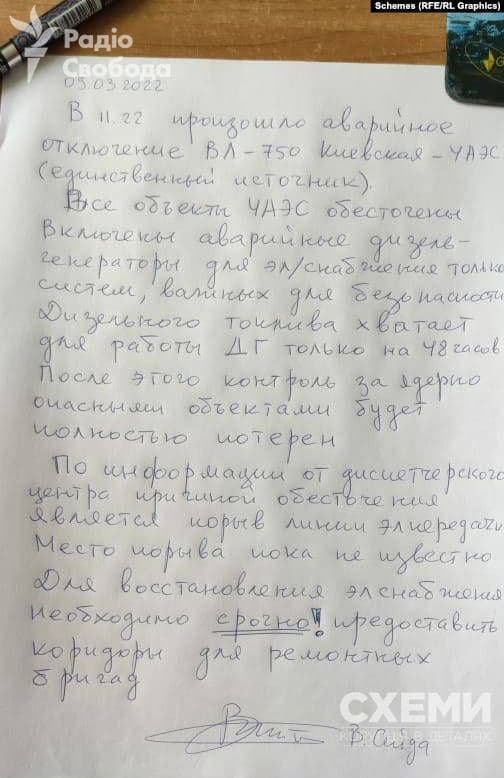 Schemes (RFE/RL Graphics)
Радіо
Свобода
09.03.2022
В 11.22 произошло аварийное
отключение ВЛ-750 Киевская-ЧАЭС
(единственный источник).
Все объекты ЧАЭС обесточены
Включены аварийные дизель-
генераторы для эл/снабжения только
систем, важных для безопасности
Дизельного топлива хватает
для работы ДГ только на 48 часов
После этого контроль за ядерно
опасными объектами будет
полностью потерен
По информации от диспетчерского
центра причиной обесточения
является порыв линии элпередачи
Место порыва пока не известно
Для восстановления элснабжения
необходимо срочно! предоставить
коридоры для ремонтных
бригад
В. Сида
СХЕМИ
КОРУПЦІЯ В ДЕТАЛЯХ